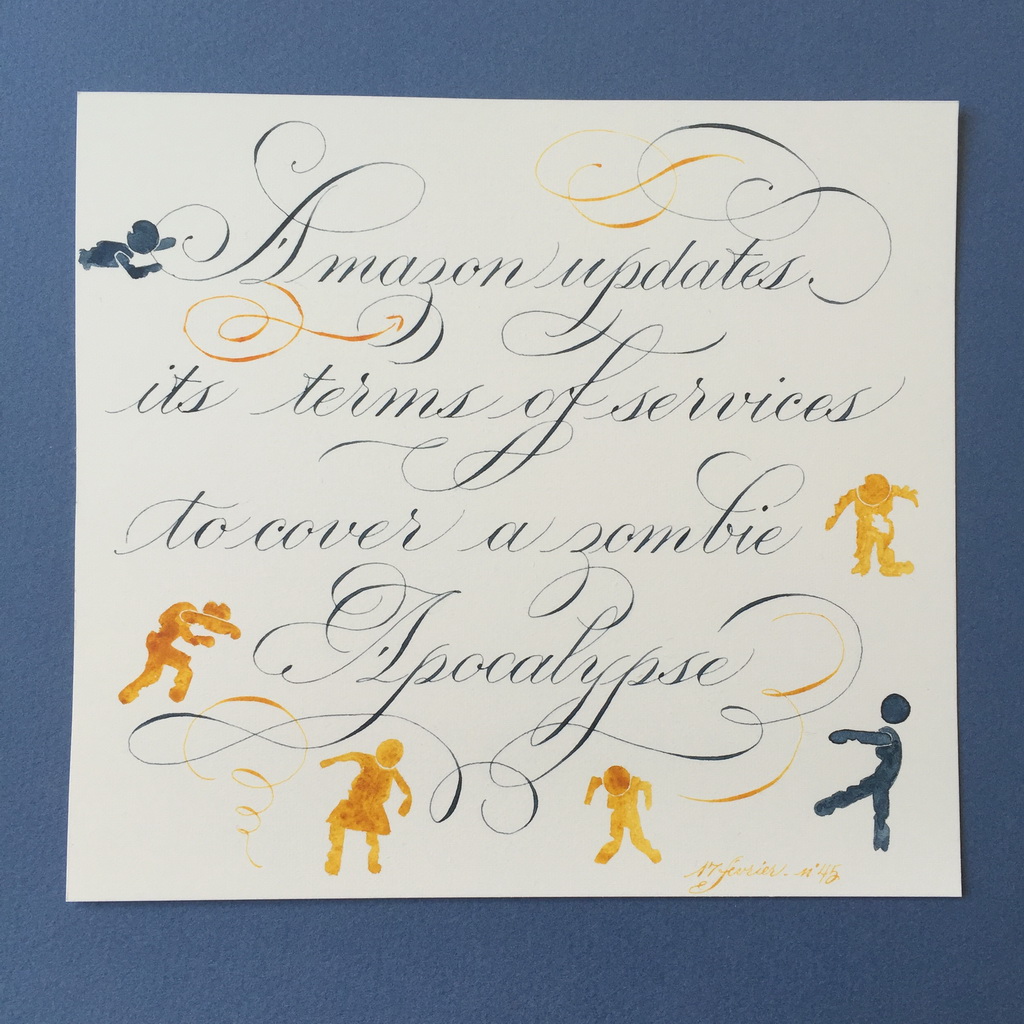 Amazon updates
its terms of services
to cover a zombie
Apocalypse
17 février. n°45